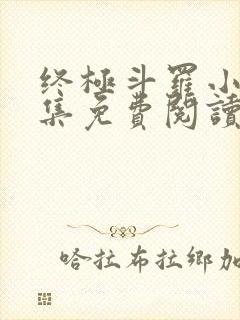 终極斗羅小
集免費閱讀
哈拉布拉鄉加